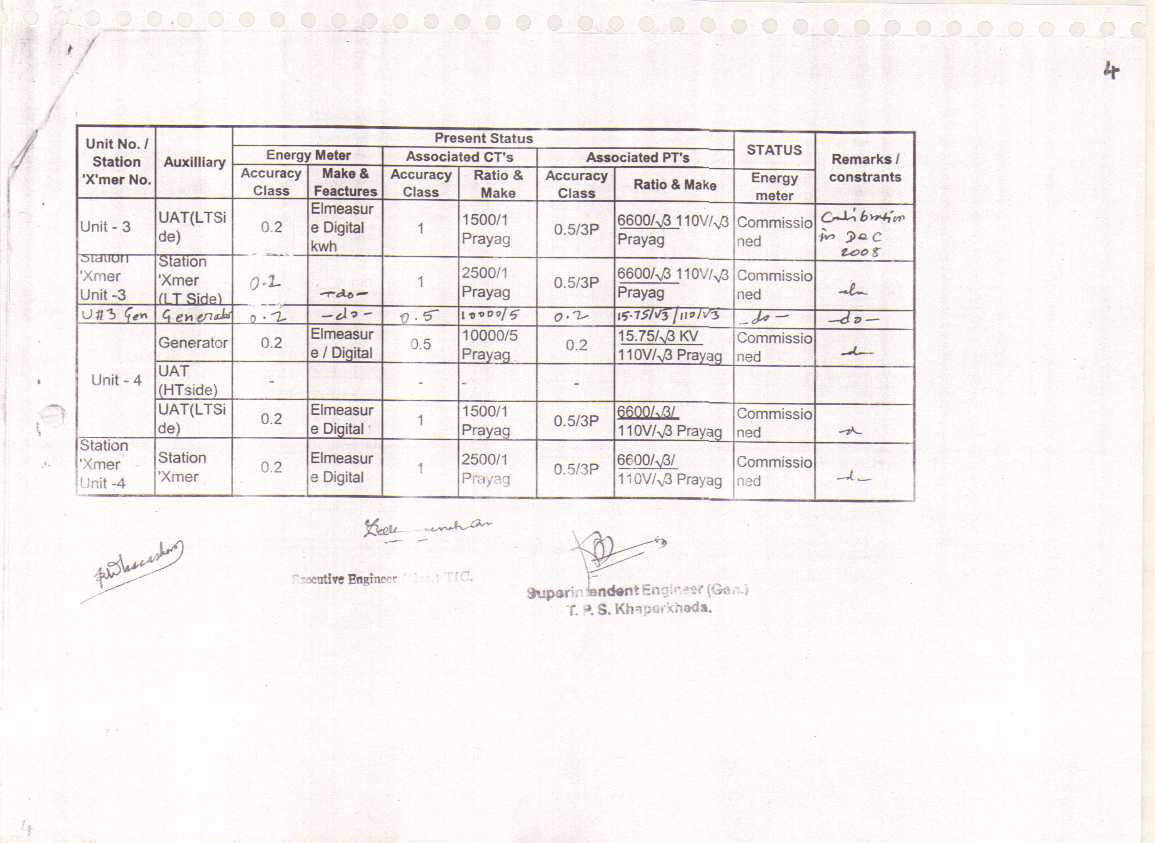 4
Present Status
Unit No. / Station 'X'mer No. | Auxilliary | Energy Meter | Associated CT's | Associated PT's | STATUS | Remarks / constrants
Accuracy Class | Make & Feactures | Accuracy Class | Ratio & Make | Accuracy Class | Ratio & Make | Energy meter
Unit - 3 | UAT(LTSi de) | 0.2 | Elmeasur e Digital kwh | 1 | 1500/1 Prayag | 0.5/3P | 6600/√3 110V/√3 Prayag | Commissio ned | Calibration in DEC 2008
Station 'Xmer Unit -3 | Station 'Xmer (LT Side) | 0.2 | -do- | 1 | 2500/1 Prayag | 0.5/3P | 6600/√3 110V/√3 Prayag | Commissio ned
U#3 Gen | Generator | 0.2 | -do- | 0.5 | 10000/5 | 0.2 | 15.75/√3/110/√3 | -do- | -do-
Unit - 4 | Generator | 0.2 | Elmeasur e / Digital | 0.5 | 10000/5 Prayag | 0.2 | 15.75/√3 KV 110V/√3 Prayag | Commissio ned
UAT (HTside) | - | - | - | -
UAT(LTSi de) | 0.2 | Elmeasur e Digital | 1 | 1500/1 Prayag | 0.5/3P | 6600/√3/ 110V/√3 Prayag | Commissio ned
Station 'Xmer Unit -4 | Station 'Xmer | 0.2 | Elmeasur e Digital | 1 | 2500/1 Prayag | 0.5/3P | 6600/√3/ 110V/√3 Prayag | Commissio ned
Executive Engineer
Superintendent Engineer (Gen.)
T. P. S. Khaperkheda.
4